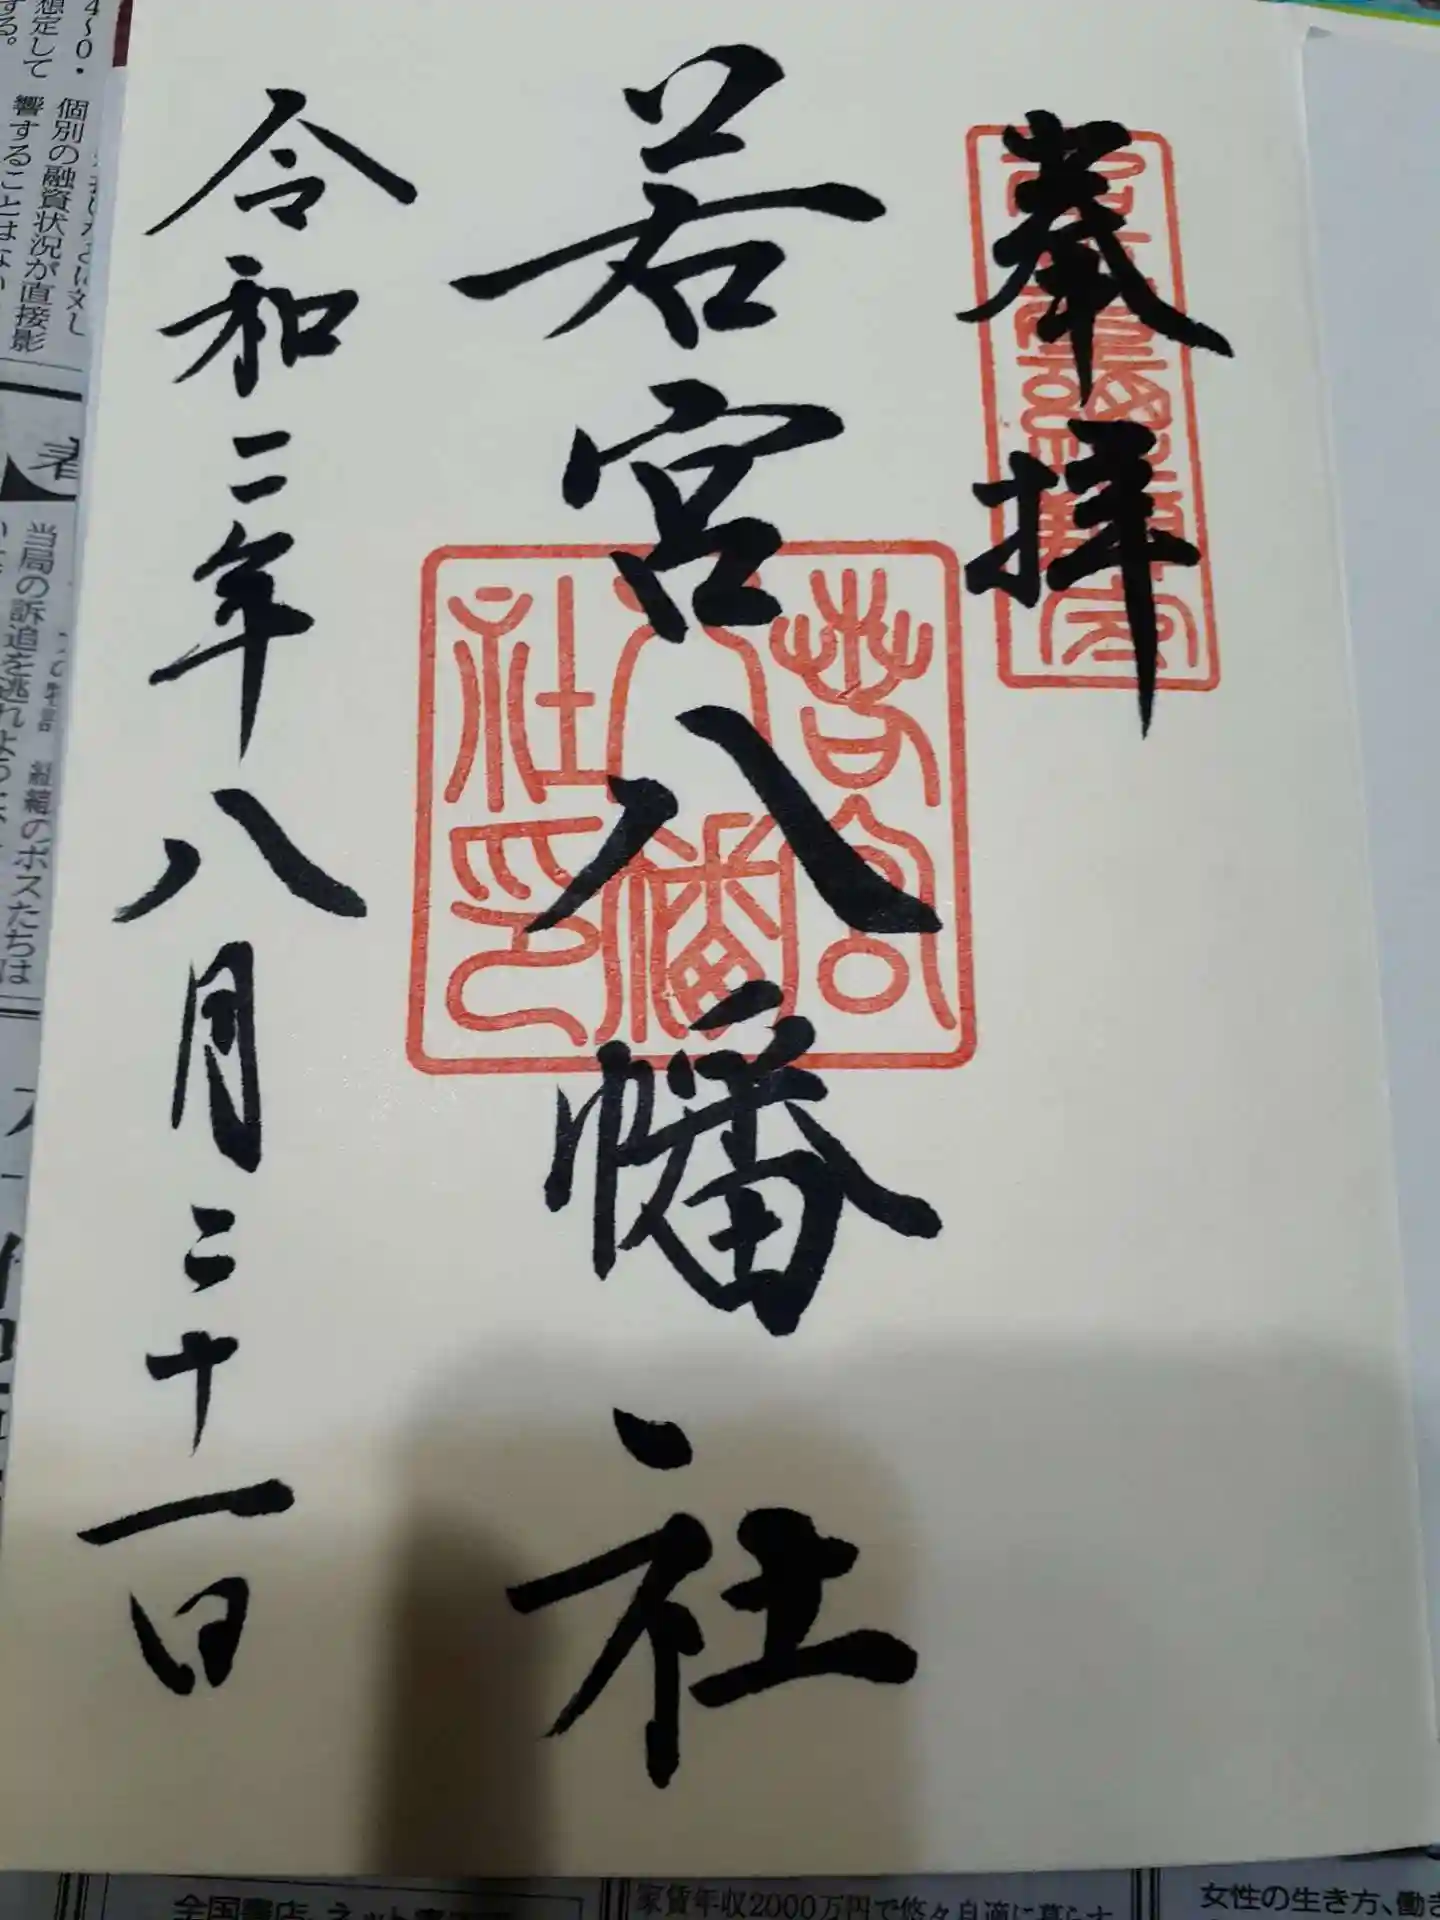 奉拝
若宮八幡社
若宮
八幡
社印
令和二年八月二十一日
想定して
する。
個別の融資状況が直接影
響することはない
当局の訴追を逃れように
組織のボスたちは
家賃年収2000万円で悠々自適に暮らす
女性の生き方、働き